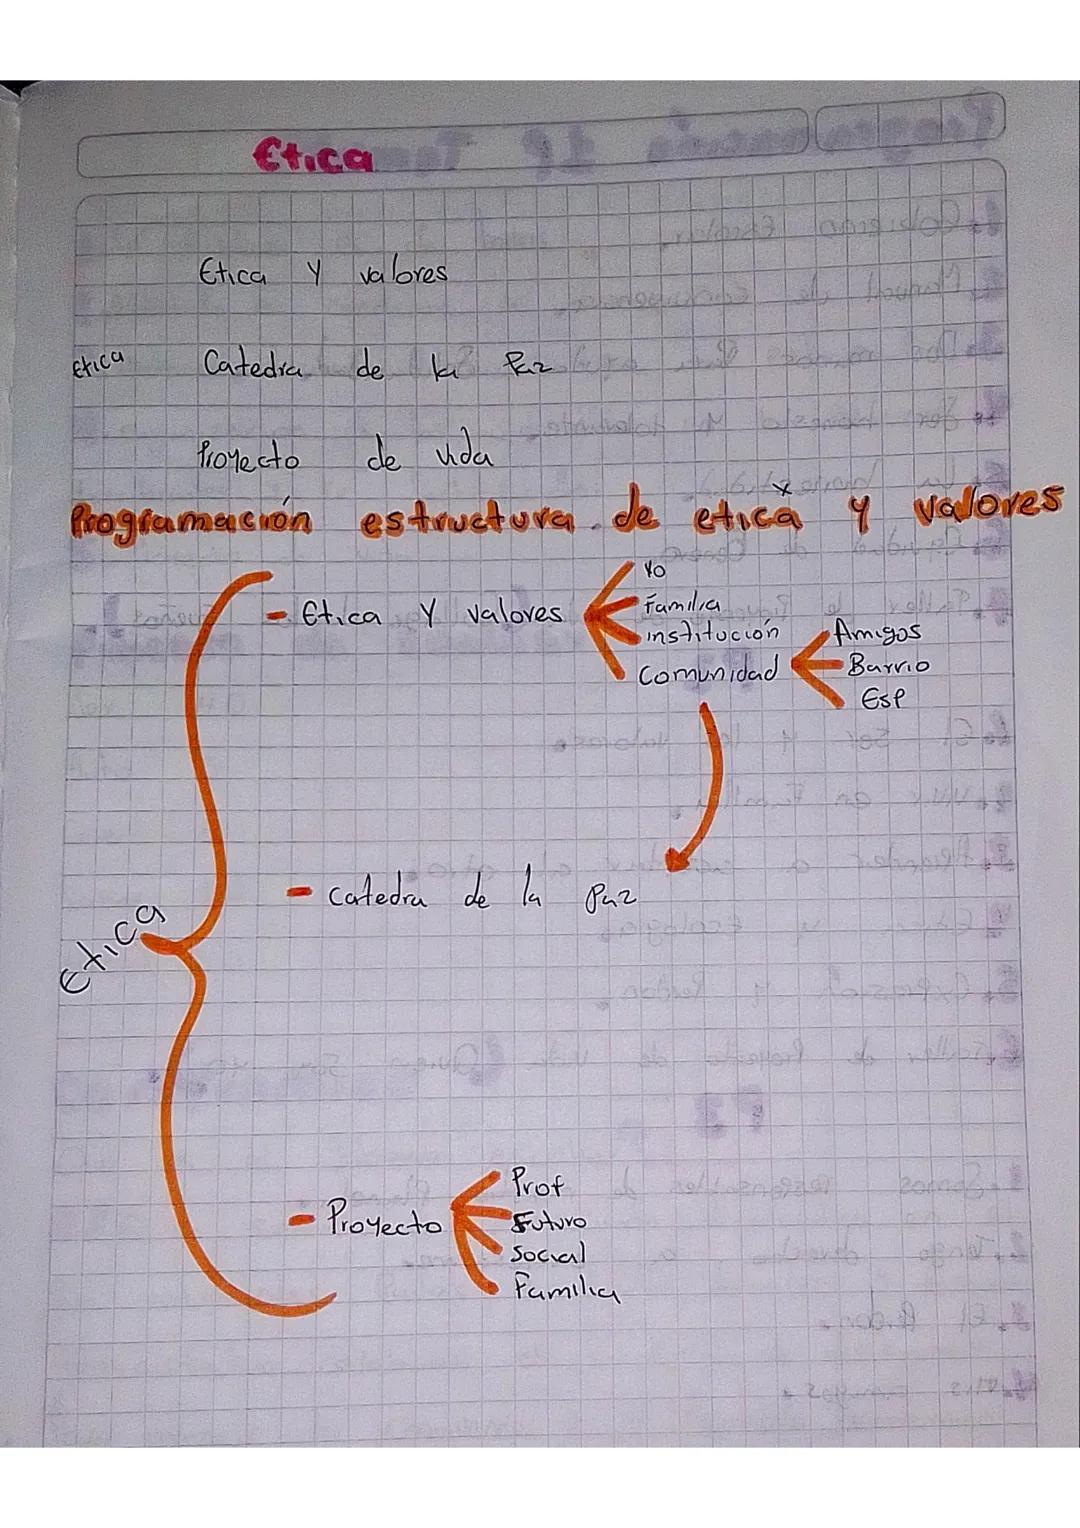 Etica
Etica y valores
Etica Catedra de la Paz
Proyecto de vida
Programación estructura de etica y valores
Etica
- Etica y valores
Yo
Familia
institución
Comunidad
Amigos
Barrio
Esp
- Catedra de la Paz
- Proyecto
Prof
Futuro
Social
Familia